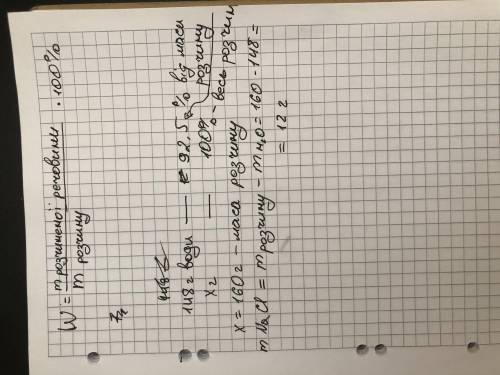 W = m розчиненої речовини / m розчину · 100%
148 г води — 92,5% від маси розчину
x г — 100% - весь розчин
x = 160 г - маса розчину
m NaCl = m розчину - m H₂O = 160 - 148 =
= 12 г